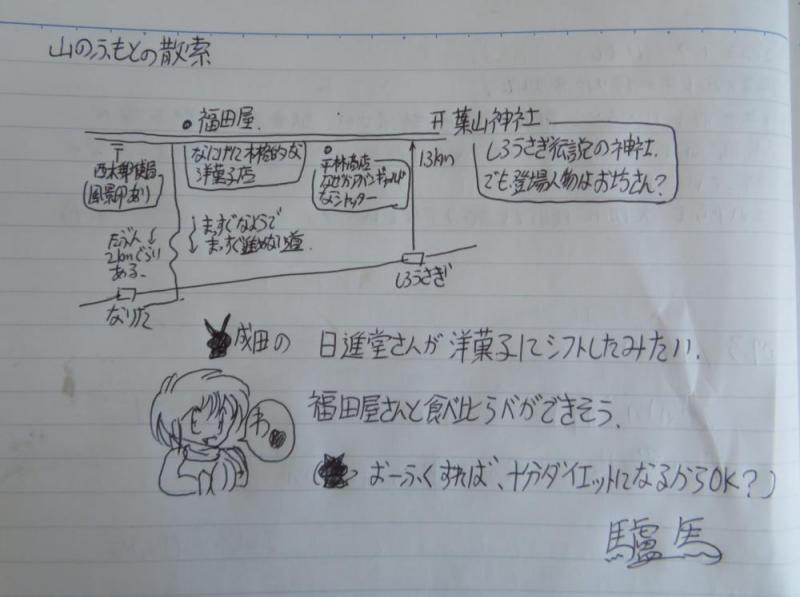 山のふもとの散索
福田屋.
开 葉山神社
〒
西木郵便局
風景印あり
なにげに本格的な
洋菓子店
平林商店
なぜかアバンギャルド
なシャッター
13km
しろうさぎ伝説の神社.
でも登場人物はお坊さん?
たぶん
2kmぐらい
ある.
まっすぐなようで
まっすぐ進めない道.
なりた
しろうさぎ
成田の 日進堂さんが洋菓子にシフトしたみたい.
わ
福田屋さんと食べ比らべができそう.
( おーふくすれば、十分ダイエットになるからOK?)
驢馬